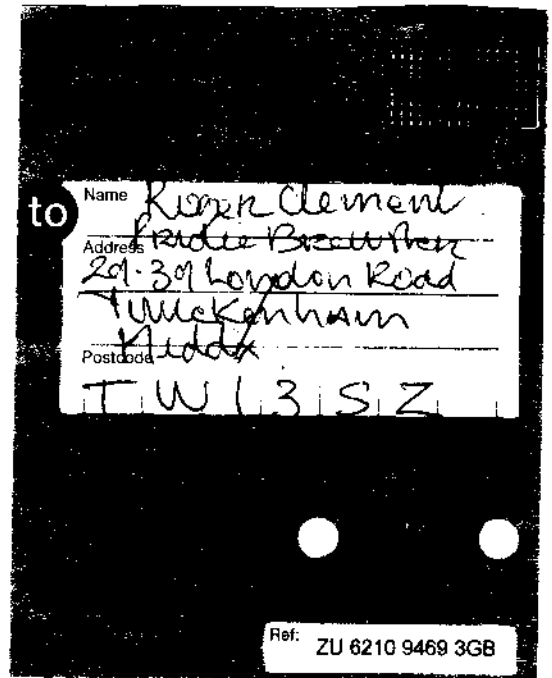 to
Name Roger Clement
Address Pridie Brewster
29-39 London Road
Twickenham
Middx
Postcode
TW1 3SZ
Ref: ZU 6210 9469 3GB